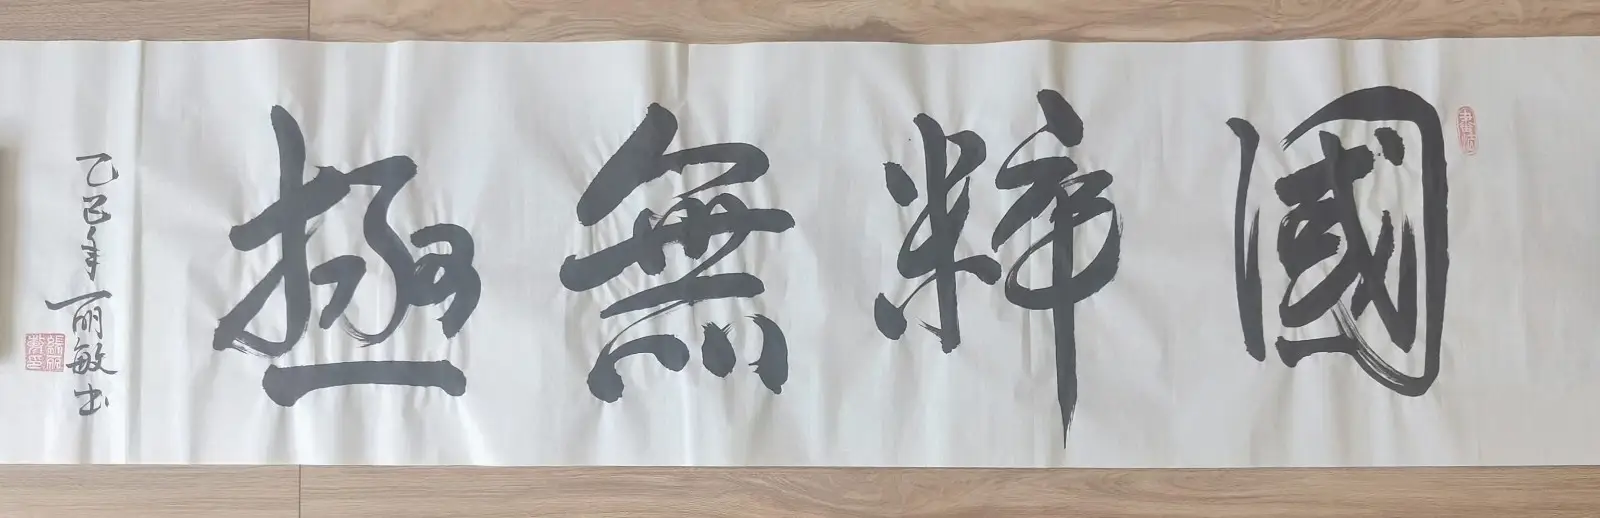 國粹無極
乙巳年丽敏书